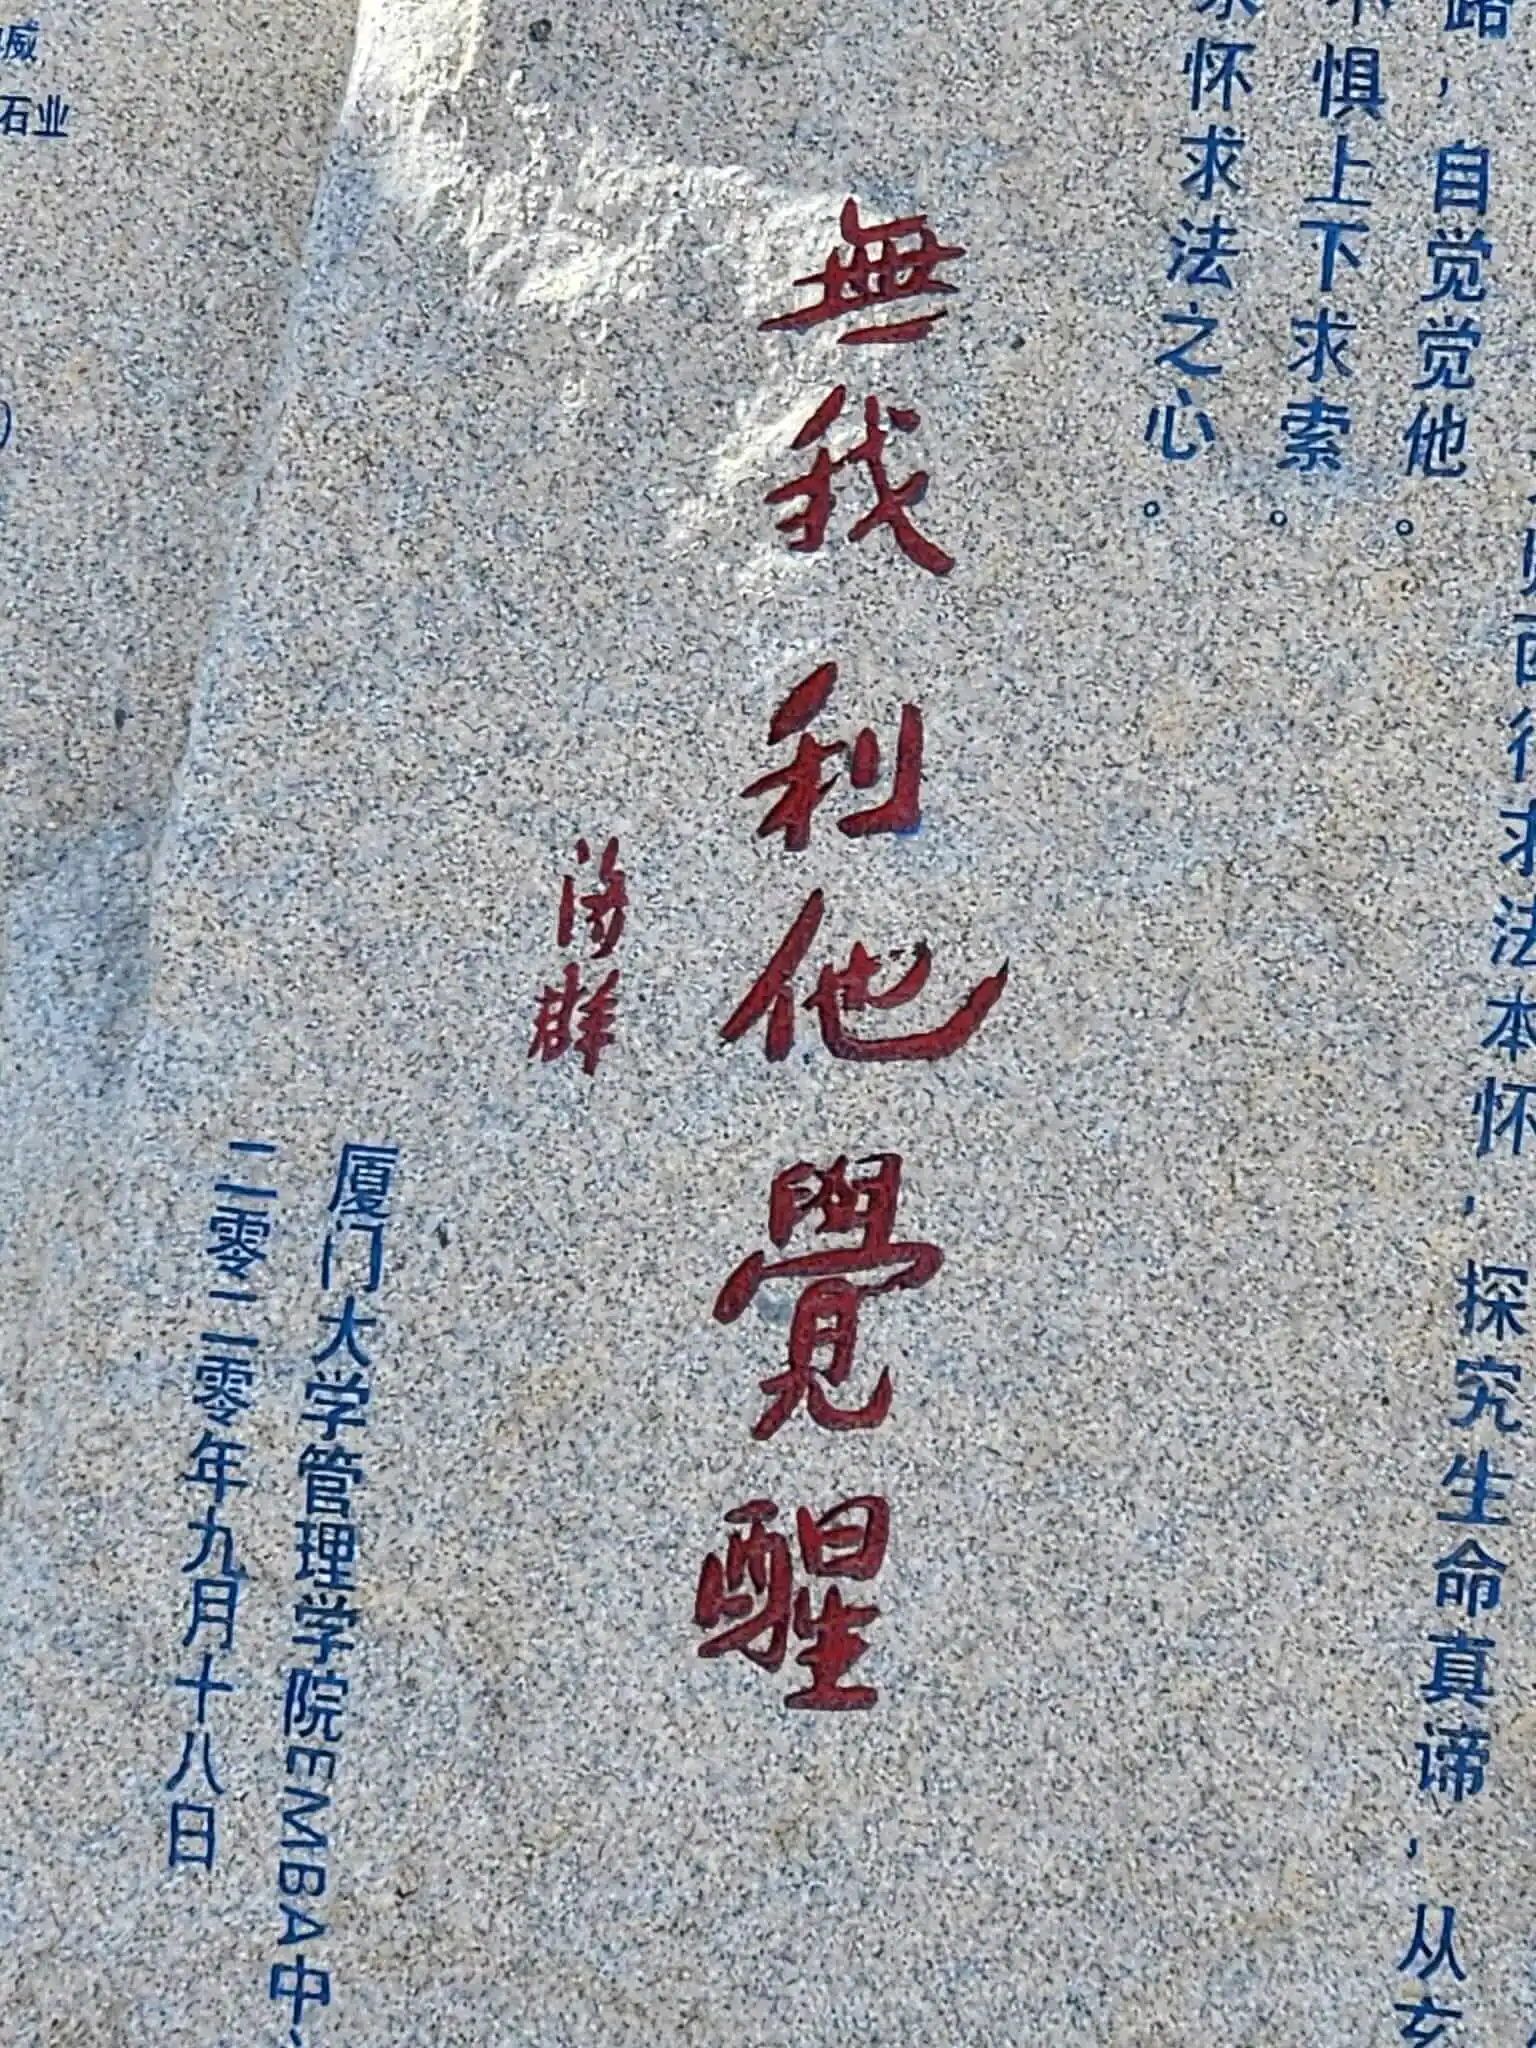 路，自觉觉他。
惧上下求索。
怀求法之心。
求法本怀，探究生命真谛，从玄
無我利他覺醒
济群
厦门大学管理学院EMBA中
二零二零年九月十八日
威
石业